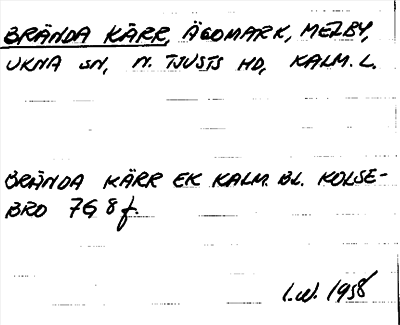 BRÄNDA KÄRR, ÄGOMARK, MELBY,
UKNA SN, N. TJUSTS HD, KALM. L.
BRÄNDA KÄRR EK KALM. BL. KOLSE-
BRO 7G 8f.
I.W. 1958